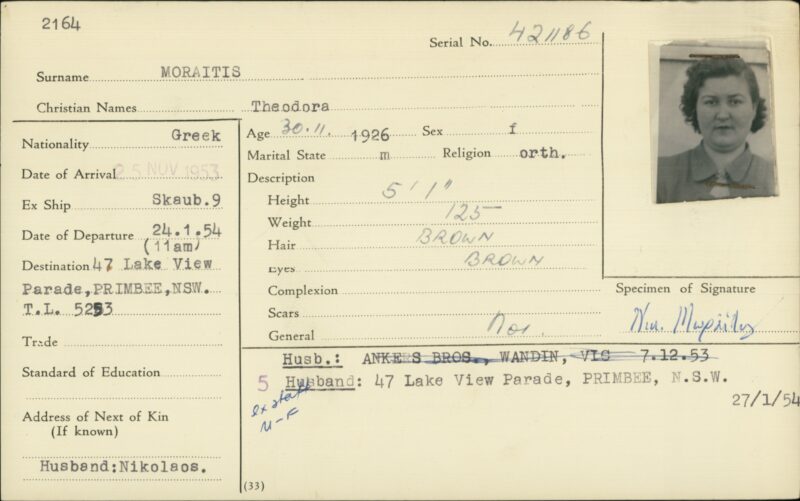 2164
Serial No. 421186
Surname MORAITIS
Christian Names Theodora
Nationality Greek
Date of Arrival 25 NOV 1953
Ex Ship Skaub.9
Date of Departure 24.1.54
(11am)
Destination 47 Lake View
Parade,PRIMBEE,NSW.
T.L. 5253
Trade
Standard of Education
Address of Next of Kin
(If known)
Husband:Nikolaos.
Age 30.11. 1926 Sex f
Marital State m Religion orth.
Description
Height 5' 1"
Weight 125
Hair BROWN
Eyes BROWN
Complexion
Scars
General
Specimen of Signature
Husb.: ANKERS BROS., WANDIN, VIC 7.12.53
5 Husband: 47 Lake View Parade, PRIMBEE, N.S.W.
27/1/54
ex staff
(33)